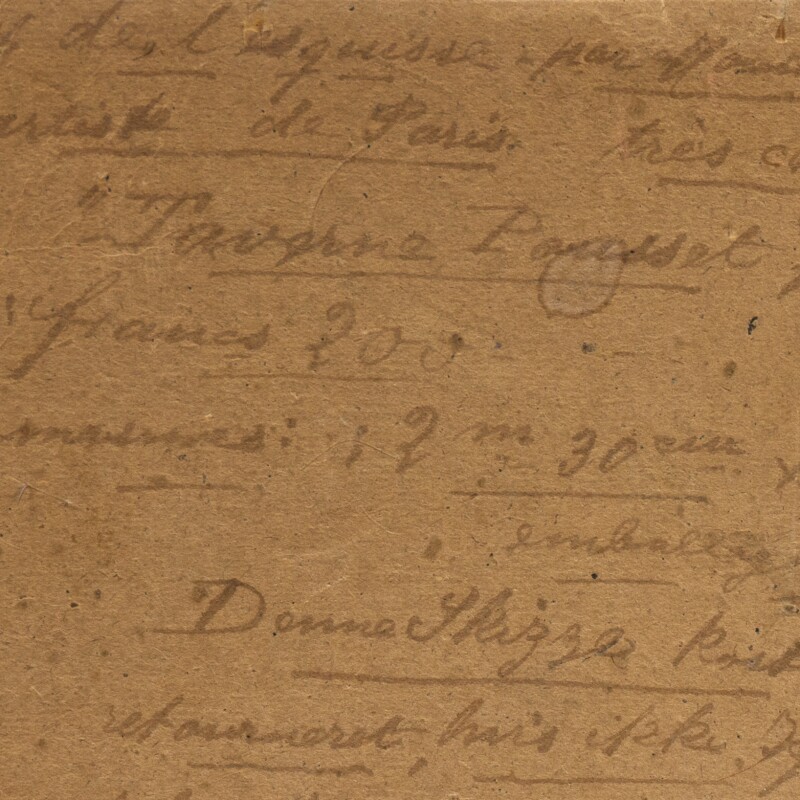 de l'esquisse par
artiste de Paris. très
"Taverne Pousset
francs 200
: 2 m 30 cm
emballag
Denne Skizze
retourneret, hvis ikke